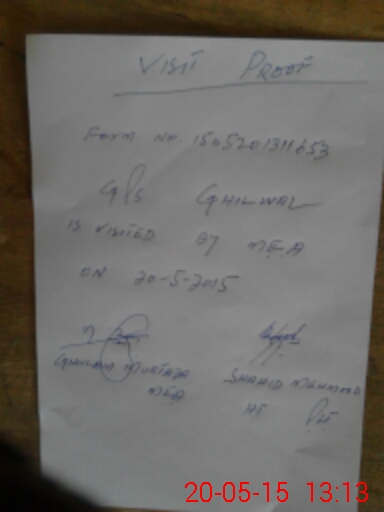 VISIT PROOF
FORM NO. 1505201311653
GPS GHILWAL
IS VISITED BY MEA
ON 20-5-2015
GHULAM MURTAZA SHAHID MEHMOOD
MEA HT
20-05-15 13:13